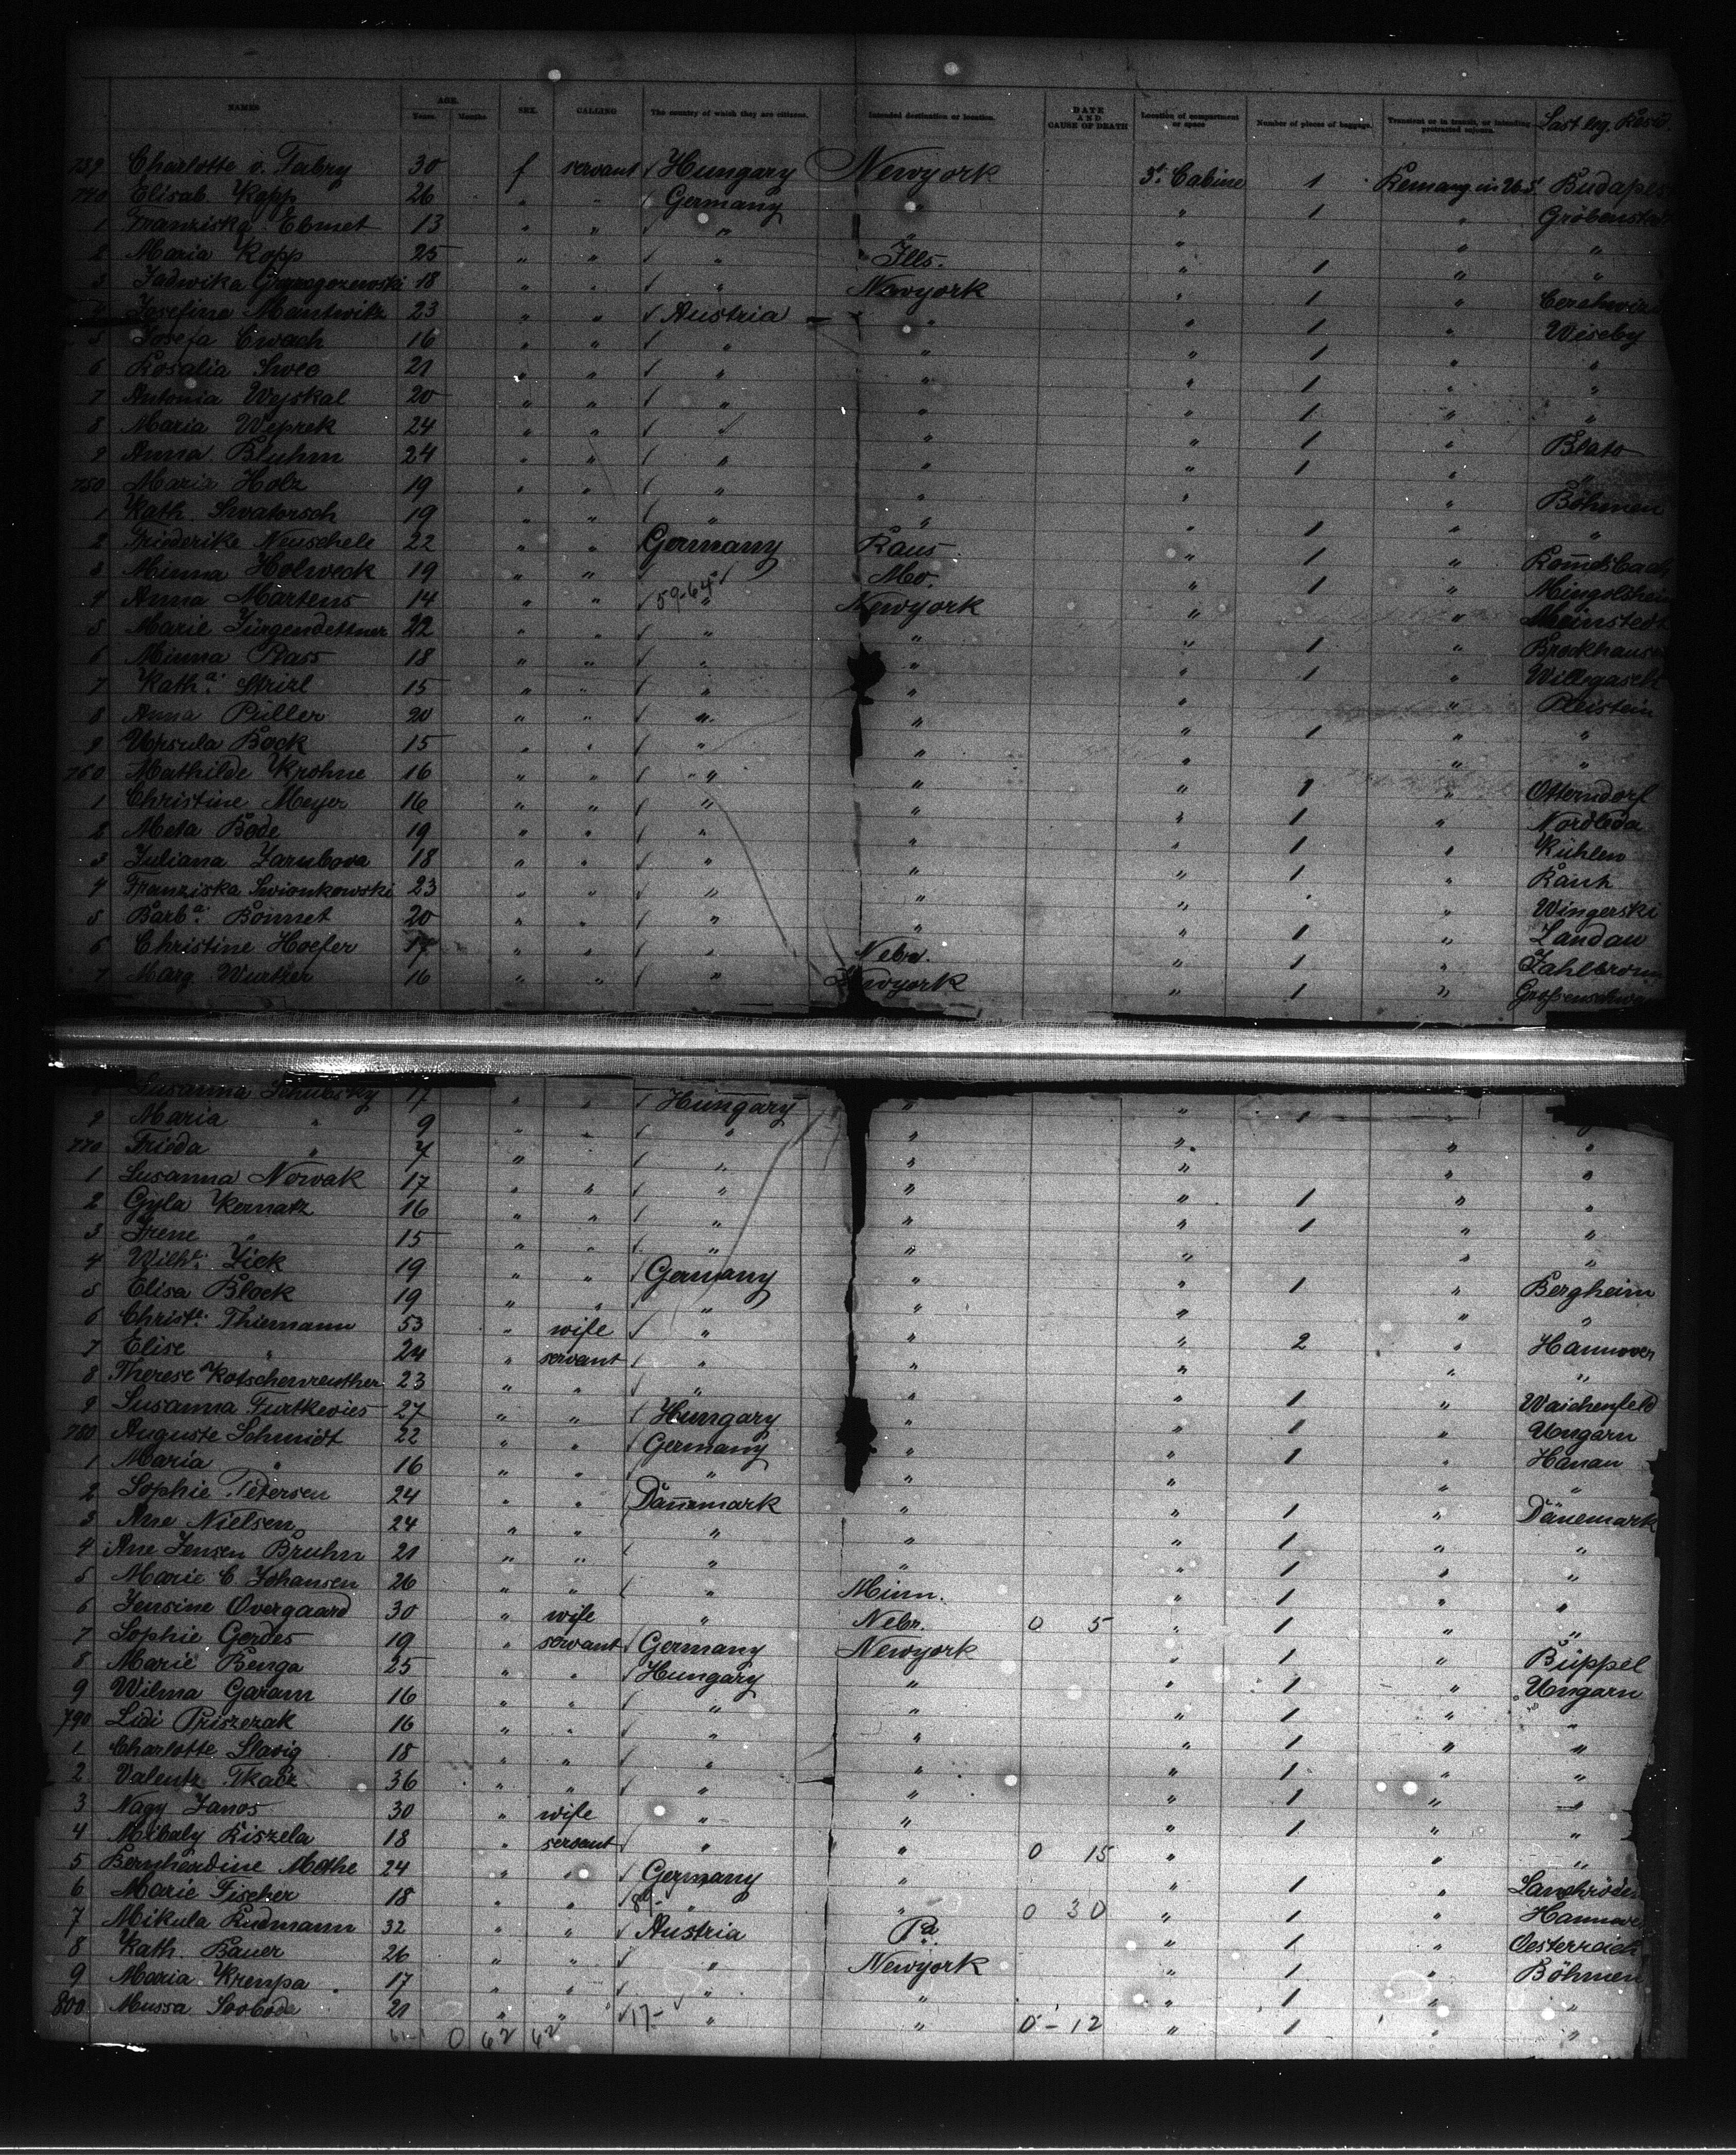 NAMES AGE. Years. Months. SEX. CALLING The country of which they are citizens. Intended destination or location. DATE AND CAUSE OF DEATH Location of compartment or space Number of pieces of baggage. Transient or in transit, or intending protracted sojourn. Last leg. Resid.
739 Charlotte v. Fabry 30 f servant ✓ Hungary Newyork 3d. Cabine 1 Budapest
740 Elisab. Kopp 26 " " ✓ Germany " " 1 "
1 Franziska Ebmet 13 " " ✓ " " " " "
2 Maria Kopp 25 " " ✓ " Ills. " 1 " "
3 Jadwika 18 " " ✓ " Newyork " 1 "
4 Josefina Mantwitz 23 " " ✓ Austria " " 1 " Wiseby
5 Josefa Cwach 16 " " ✓ " " " 1 " "
6 Rosalia Swec 21 " " ✓ " " " 1 " "
7 Antonia Wejskal 20 " " ✓ " " " 1 " "
8 Maria Weprek 24 " " ✓ " " " 1 " Blato
9 Anna Bluhm 24 " " ✓ " " " 1 " "
750 Maria Holz 19 " " ✓ " " " " Böhmen
1 Kath. Swatorsch 19 " " ✓ " " " 1 " "
2 Friederike Neuschele 22 " " Germany Kans. " 1 "
3 Minna Holweck 19 " " ✓ " Mo. " 1 "
4 Anna Martens 14 " " ✓ 59-64 " Newyork " "
5 Marie Jürgendettner 22 " " ✓ " " " 1 "
6 Minna Plass 18 " " ✓ " " " 1 "
7 Katha. Strizl 15 " " ✓ " " " " Pleistein
8 Anna Püller 20 " " ✓ " " " 1 " "
9 Ursula Bock 15 " " ✓ " " " " "
760 Mathilde Krohne 16 " " ✓ " " " 1 " Otterndorf
1 Christine Meyer 16 " " ✓ " " " 1 " Nordleda
2 Meta Bode 19 " " ✓ " " " 1 " Kühlen
3 Juliana Jarubova 18 " " ✓ " " " 1 "
4 Franziska Swionkowski 23 " " ✓ " " " " Wingerski
5 Barba. Bonnet 20 " " ✓ " " " 1 " Landau
6 Christine Hoefer 17 " " ✓ " Nebr. " 1 "
7 Marg. Wurther 16 " " ✓ " Newyork " 1 "
Susanna 17 " " ✓ Hungary " " 1
9 Maria " 9 " " ✓ " " " " "
770 Frieda " 7 " ✓ " " " " "
1 Susanna Nowak 17 " " ✓ " " " 1 " "
2 Gyla Kernatz 16 " " ✓ " " " 1 " "
3 Irene " 15 " " ✓ " " " " "
4 Wilhe. Zick 19 " " ✓ Germany " " 1 " Bergheim
5 Elisa Block 19 " " ✓ " " " " "
6 Christe. Thiemann 53 " wife ✓ " " " 2 " Hannover
7 Elise " 24 " servant ✓ " " " " "
8 Therese Kotschenreuther 23 " " ✓ " " " 1 " Waichenfeld
9 Susanna Furtkevies 27 " " ✓ Hungary " " 1 " Ungarn
780 Auguste Schmidt 22 " " ✓ Germany " " 1 " Hanau
1 Maria " 16 " " ✓ " " " " "
2 Sophie Petersen 24 " " Dänemark " " 1 " Dänemark
3 Ane Nielsen 24 " " " " " 1 " "
4 Ane Jensen Bruhn 21 " " " " " 1 " "
5 Marie C Johansen 26 " " " Minn. " 1 " "
6 Jensine Overgaard 30 " wife " Nebr. 0 5 " 1 " "
7 Sophie Gerdes 19 " servant ✓ Germany Newyork " 1 " Büppel
8 Marie Benga 25 " " ✓ Hungary " " 1 " Ungarn
9 Wilma Garam 16 " " ✓ " " " 1 " "
790 Lidi Priszezak 16 " " ✓ " " " 1 " "
1 Charlotte Slavig 18 " " ✓ " " " 1 " "
2 Valentz Tkacz 36 " " ✓ " " " 1 "
3 Nagy Janos 30 " wife " " " 1 " "
4 Mihaly Kiszela 18 " servant ✓ " " 0 15 " " "
5 Bernhardine Mothe 24 " " ✓ Germany " " 1 "
6 Marie Fischer 18 " " ✓ " " 0 30 " 1 " Hannover
7 Mikula Rudmann 32 " " ✓ Austria Pa. " 1 " Oesterreich
8 Kath. Bauer 26 " " ✓ " Newyork " 1 " Böhmen
9 Maria Krempa 17 " " ✓ " " " 1 " "
800 Mussa Svoboda 21 " " ✓ 17- " " 0-12 " 1 " "
0 62 62